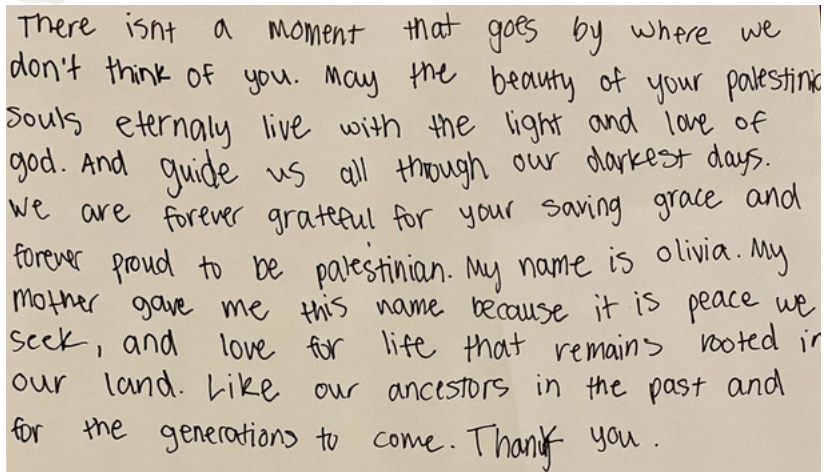 There isnt a moment that goes by where we
don't think of you. May the beauty of your palestinia
souls eternaly live with the light and love of
god. And guide us all through our darkest days.
we are forever grateful for your saving grace and
forever proud to be palestinian. My name is olivia. My
mother gave me this name because it is peace we
seek, and love for life that remains rooted in
our land. Like our ancestors in the past and
for the generations to come. Thank you.